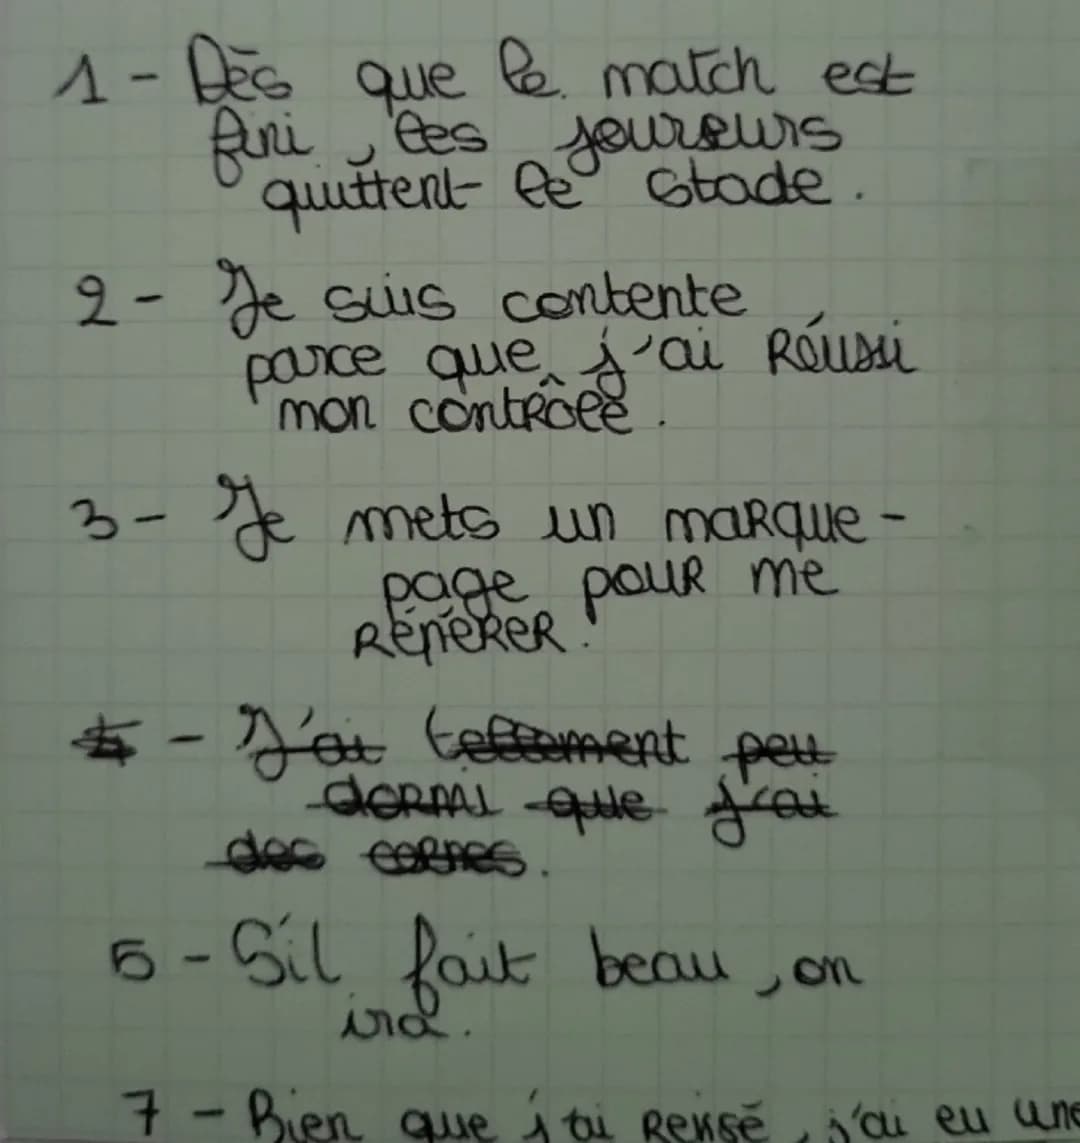 1 - Dès que le match est
fini, les joureurs
quittent le stade.
2 - Je suis contente
parce que j'ai réussi
mon contrôle.
3 - Je mets un marque -
page pour me
repérer.
4 - J'ai tellement peu
dormi que j'ai
des cernes.
5 - Sil fait beau, on
ira.
7 - Bien que j'ai révisé, j'ai eu une